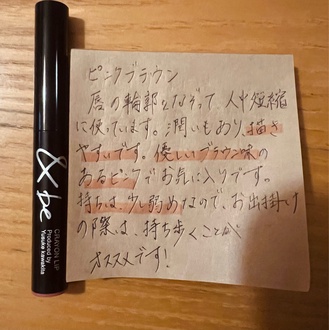 ピンクブラウン
唇の輪郭をなぞって、人中短縮
に使っています。潤いもあり、描き
やすいです。優しいブラウン味の
あるピンクでお気に入りです。
持ちは、少し弱めなので、お出掛け
の際は、持ち歩くことが
オススメです!
&be
CRAYON LIP
Produced by
Yusuke kawakita